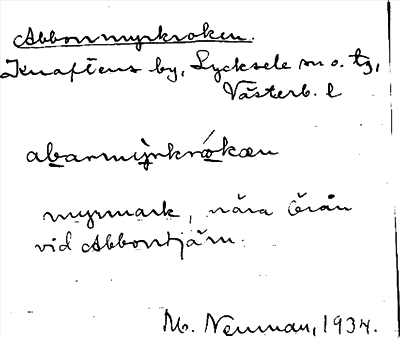 Abborrmyrkroken.
Knaftens by, Lycksele sn o. tg,
Västerb. l
abarmyrkrókæn
myrmark, nära Örån
vid Abborrtjärn.
M. Neuman, 1934.